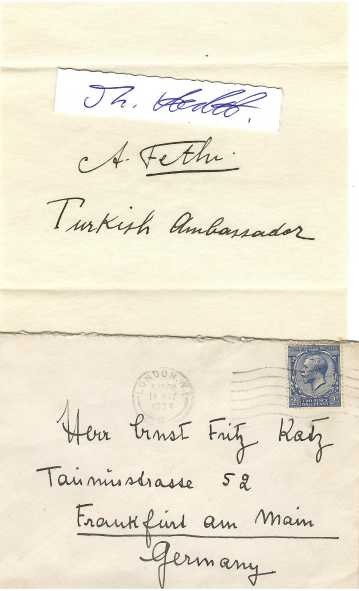 Th.
A. Fethi.
Turkish Ambassador
LONDON
Herr Ernst Fritz Katz
Taunusstrasse 52
Frankfurt am Main
Germany